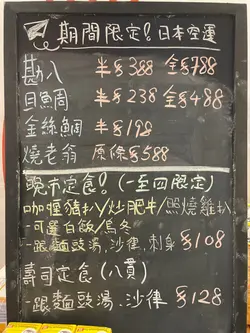 期間限定! 日本空運
勘八 半$388 全$788
貝鯛 半$238 全$488
金絲鯛 半$198
燒老翁 原條$588
晚市定食! (一至四限定)
咖喱豬扒/炒肥牛/照燒雞扒
-可選白飯/烏冬
-跟麵豉湯、沙律、刺身 $108
壽司定食 (八貫)
-跟麵豉湯、沙律 $128